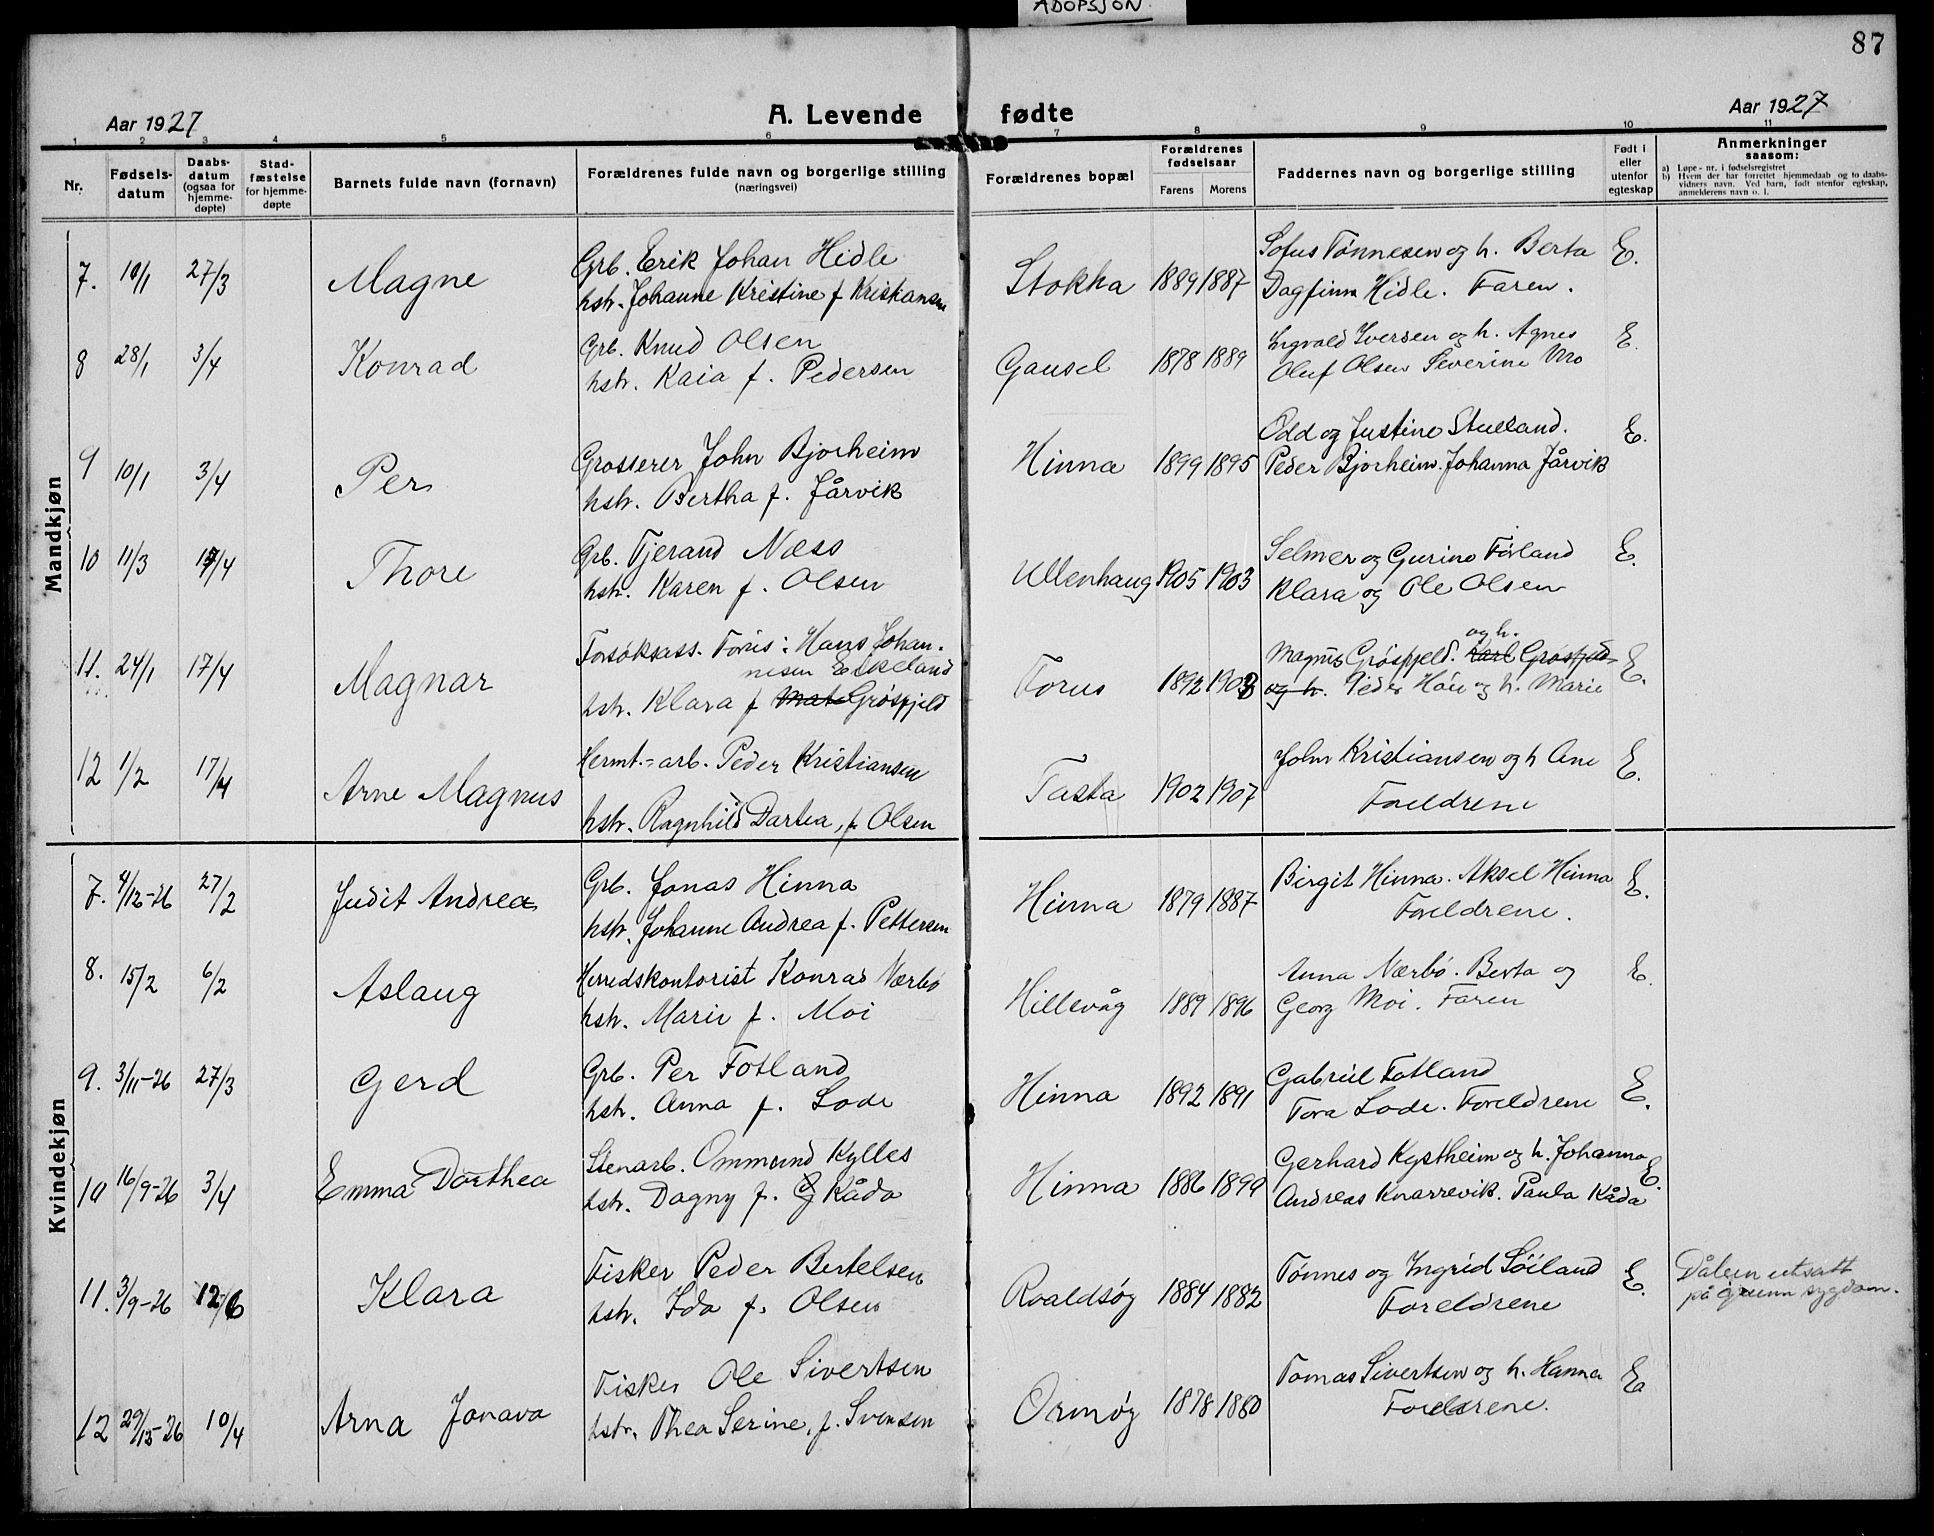 ADOPSJON.
87
Aar 1927
A. Levende fødte
Aar 1927
1 2 3 4 5 6 7 8 9 10 11
Nr.
Fødsels-
datum
Daabs-
datum
(ogsaa for
hjemme-
døpte)
Stad-
fæstelse
for hjemme-
døpte
Barnets fulde navn (fornavn)
Forældrenes fulde navn og borgerlige stilling
(næringsvei)
Forældrenes bopæl
Forældrenes
fødselsaar
Farens Morens
Faddernes navn og borgerlige stilling
Født i
eller
utenfor
egteskap
Anmerkninger
saasom:
a) Løpe-nr. i fødselsregistret
b) Hvem der har forrettet hjemmedaab og to daabs-
vidners navn. Ved barn, født utenfor egteskap,
anmelderens navn o. l.
Mandkjøn
7. 10/1 27/3 Magne
Grb. Erik Johan Hidle
hstr. Johanne Kristine f. Kristiansen
Stokka 1889 1887
Sofus Tønnesen og h. Berta
Dagfinn Hidle. Faren.
E.
8 28/1 3/4 Konrad
Grb. Knud Olsen
hstr. Kaia f. Pedersen
Gausel 1878 1889
Ingvald Iversen og h. Agnes
Oluf Olsen Severine Mo
E.
9 10/1 3/4 Per
Grosserer John Bjorheim
hstr. Bertha f. Jårvik
Hinna 1899 1895
Odd og Justine Stueland.
Peder Bjorheim. Johanna Jårvik
E.
10 11/3 17/4 Thore
Grb. Tjerand Næss
hstr. Karen f. Olsen
Ullenhaug 1905 1903
Selmer og Gurine Førland
Klara og Ole Olsen
E.
11. 24/1 17/4 Magnar
Forsøksass. Forus: Hans Johan-
nesen Eikeland
hstr. Klara f. Grøsfjeld
Forus 1892 1903
og h.
Magnus Grøsfjeld. Karl Grøsfjeld
og h. Peder Håu og h. Marie
E.
12 1/2 17/4 Arne Magnus
Hermt.-arb. Peder Kristiansen
hstr. Ragnhild Dartea, f. Olsen
Tasta 1902 1907
John Kristiansen og h Ane
Foreldrene
E.
Kvindekjøn
7. 4/12-26 27/2 Judit Andrea
Grb. Jonas Hinna
hstr. Johanne Andrea f. Pettersen
Hinna 1879 1887
Birgit Hinna. Aksel Hinna
Foreldrene.
E.
8. 15/2 6/2 Aslaug
Herredskontorist Konrad Nærbø
hstr. Marie f. Moi
Hillevåg 1889 1896
Anna Nærbø. Berta og
Georg Moi. Faren
E.
9. 3/11-26 27/3 Gerd
Grb. Per Fotland
hstr. Anna f. Lode
Hinna 1892 1891
Gabriel Fotland
Tora Lode. Foreldrene
E.
10 16/9-26 3/4 Emma Dorthea
Stenarb. Ommund Kylles
hstr. Dagny f. Kåda
Hinna 1886 1899
Gerhard Kystheim og h. Johanna
Andreas Knarrevik. Paula Kåda
E.
11. 3/9-26 12/6 Klara
Fisker Peder Bertelsen
hstr. Ida f. Olsen
Roaldsøy 1884 1882
Tønnes og Ingrid Søiland
Foreldrene
E.
Dåben utsatt
på grunn sygdom.
12 29/12-26 10/4 Arna Jonava
Fisker Ole Sivertsen
hstr. Thea Serine, f. Svensen
Ormøy 1878 1880
Tomas Sivertsen og h. Hanna
Foreldrene.
E